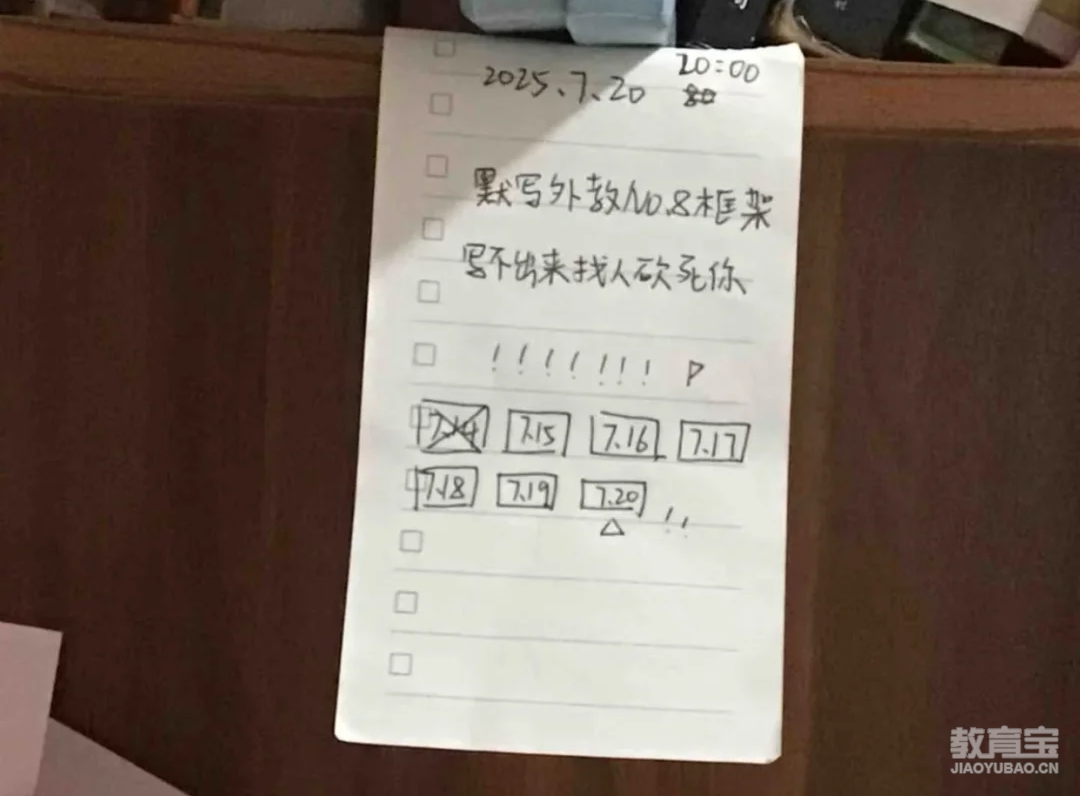 2025、7、20 20:00
默写外教No.8框架
写不出来找人砍死你
!!!!!!!
7.14 7.15 7.16 7.17
7.18 7.19 7.20
!!
教育宝
JIAOYUBAO.CN